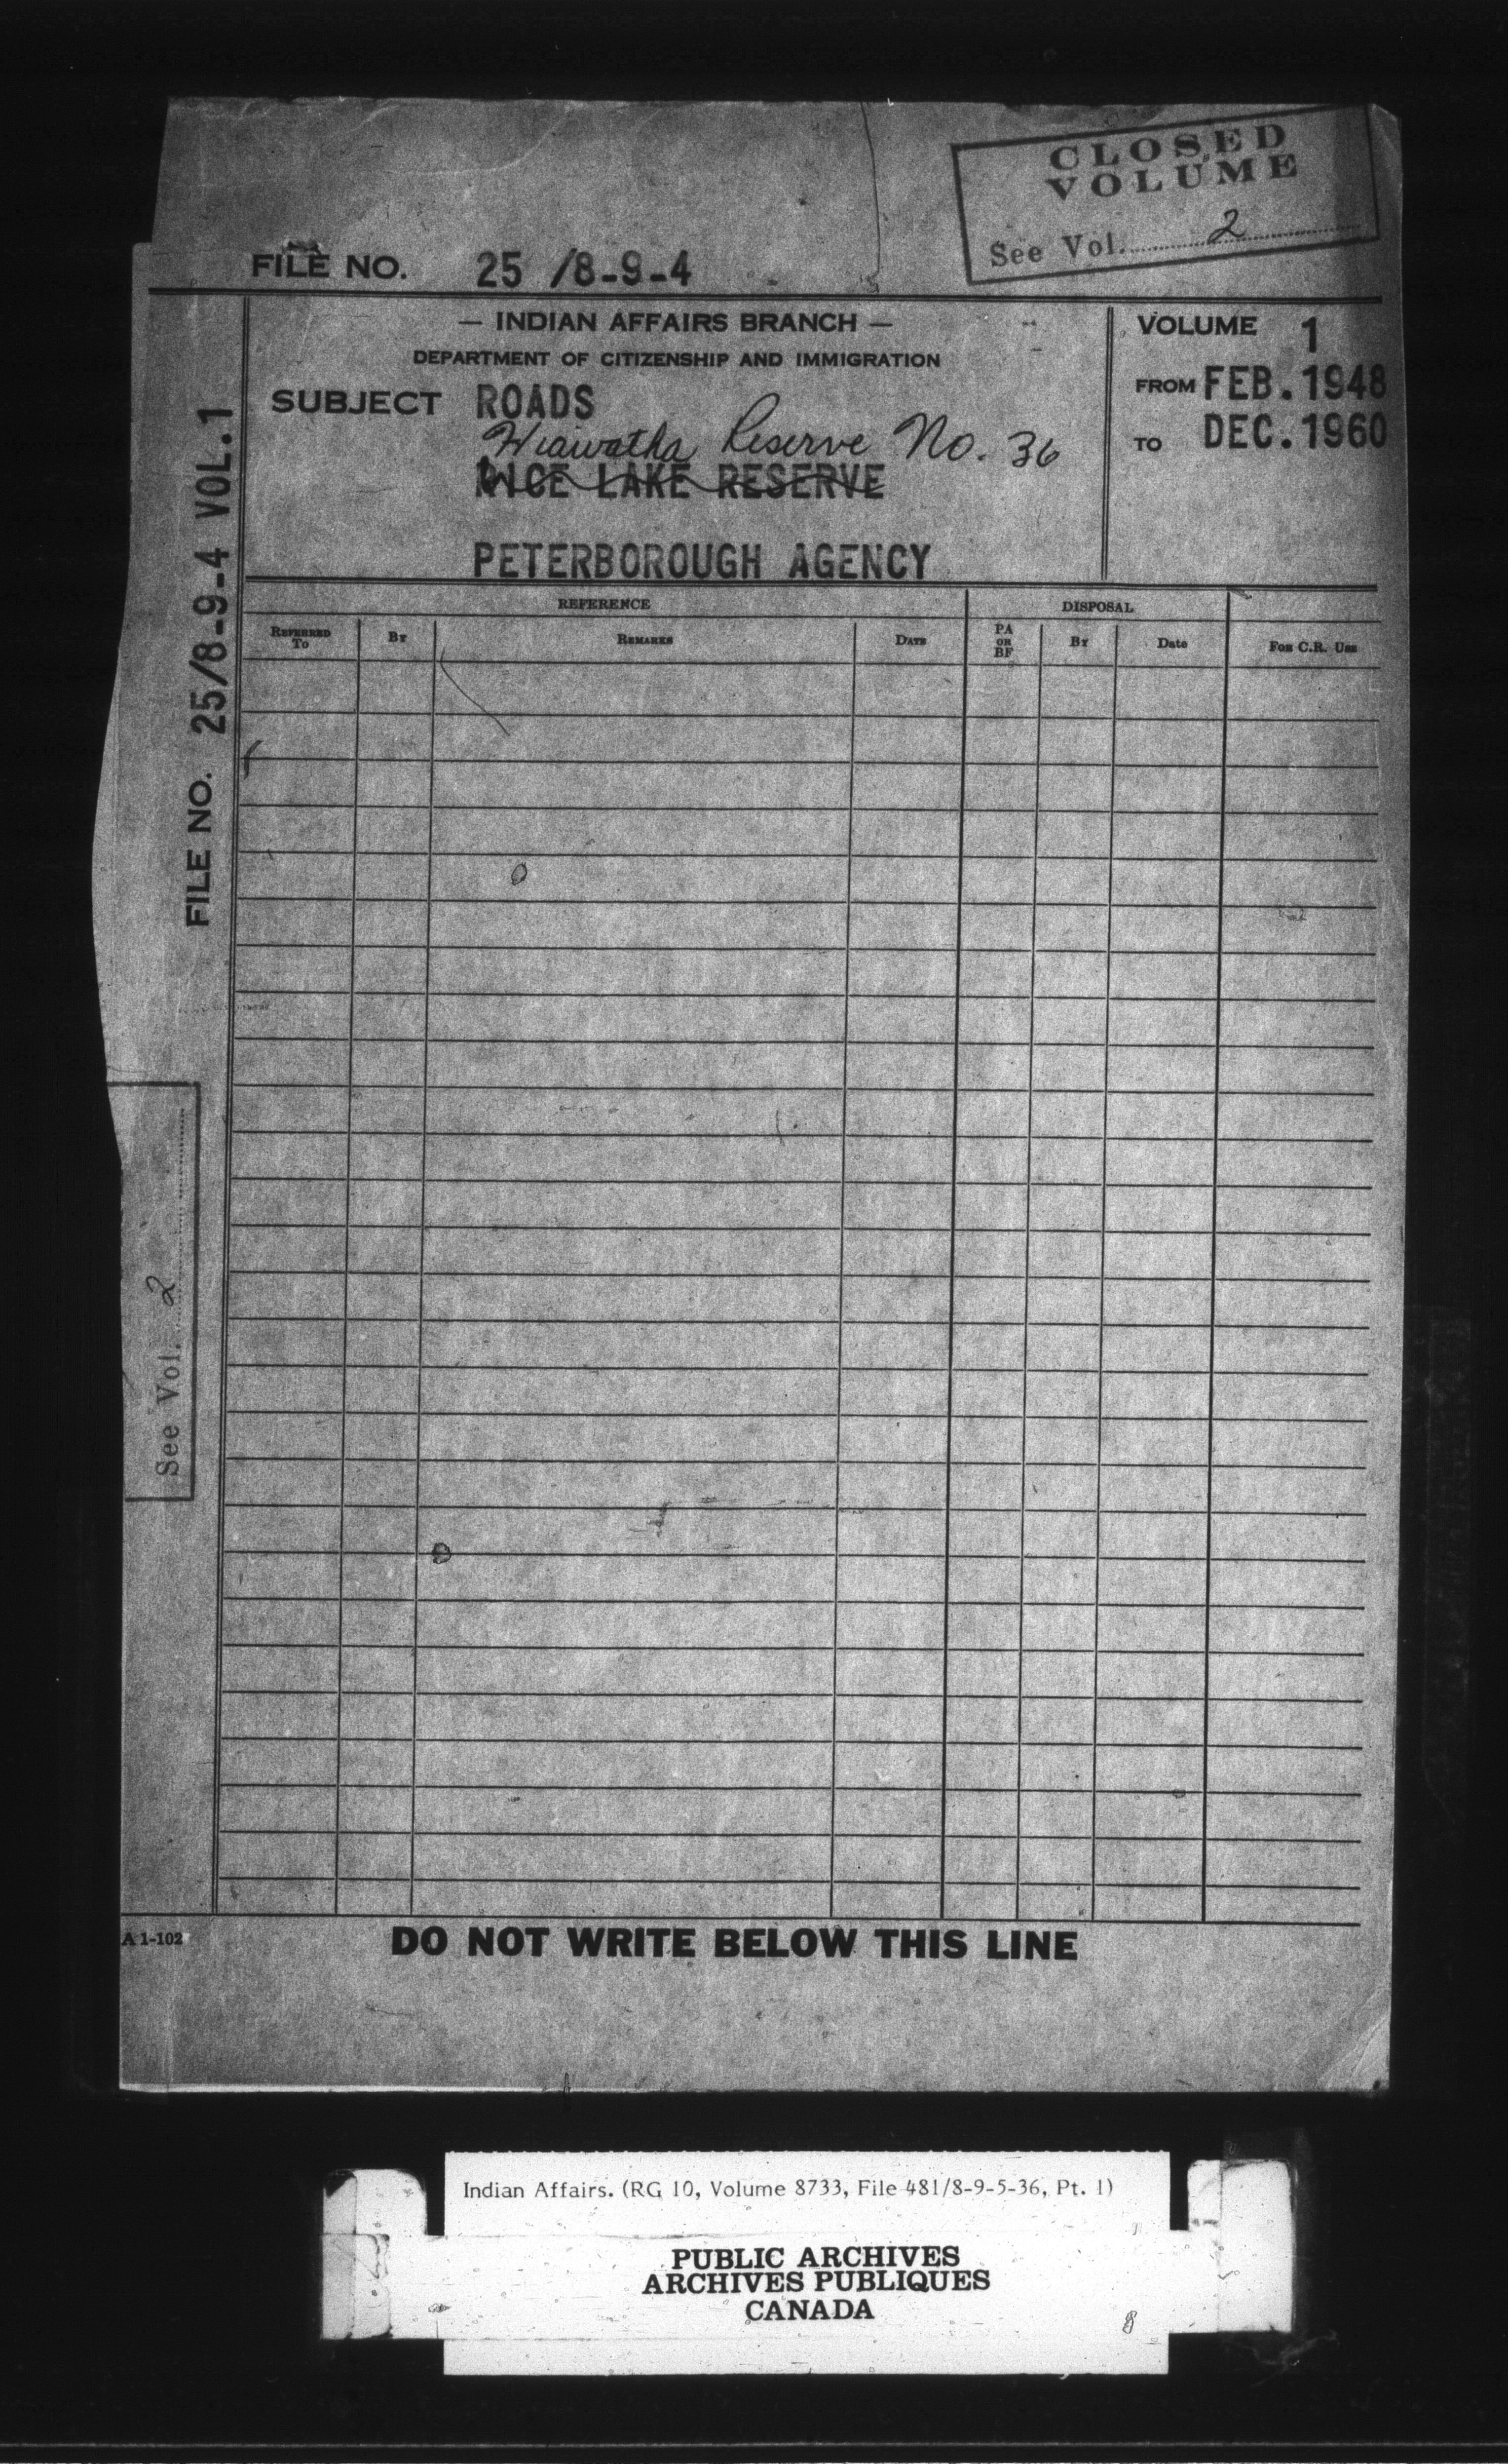 CLOSED
VOLUME
See Vol. 2
FILE NO. 25 /8-9-4
— INDIAN AFFAIRS BRANCH —
DEPARTMENT OF CITIZENSHIP AND IMMIGRATION
SUBJECT ROADS
Hiawatha Reserve No. 36
RICE LAKE RESERVE
PETERBOROUGH AGENCY
VOLUME 1
FROM FEB. 1948
TO DEC. 1960
FILE NO. 25/8-9-4 VOL.1
REFERENCE DISPOSAL
REFERRED TO BY REMARKS DATE PA OR BF BY Date FOR C.R. USE
See Vol. 2
A 1-102
DO NOT WRITE BELOW THIS LINE
Indian Affairs. (RG 10, Volume 8733, File 481/8-9-5-36, Pt. 1)
PUBLIC ARCHIVES
ARCHIVES PUBLIQUES
CANADA